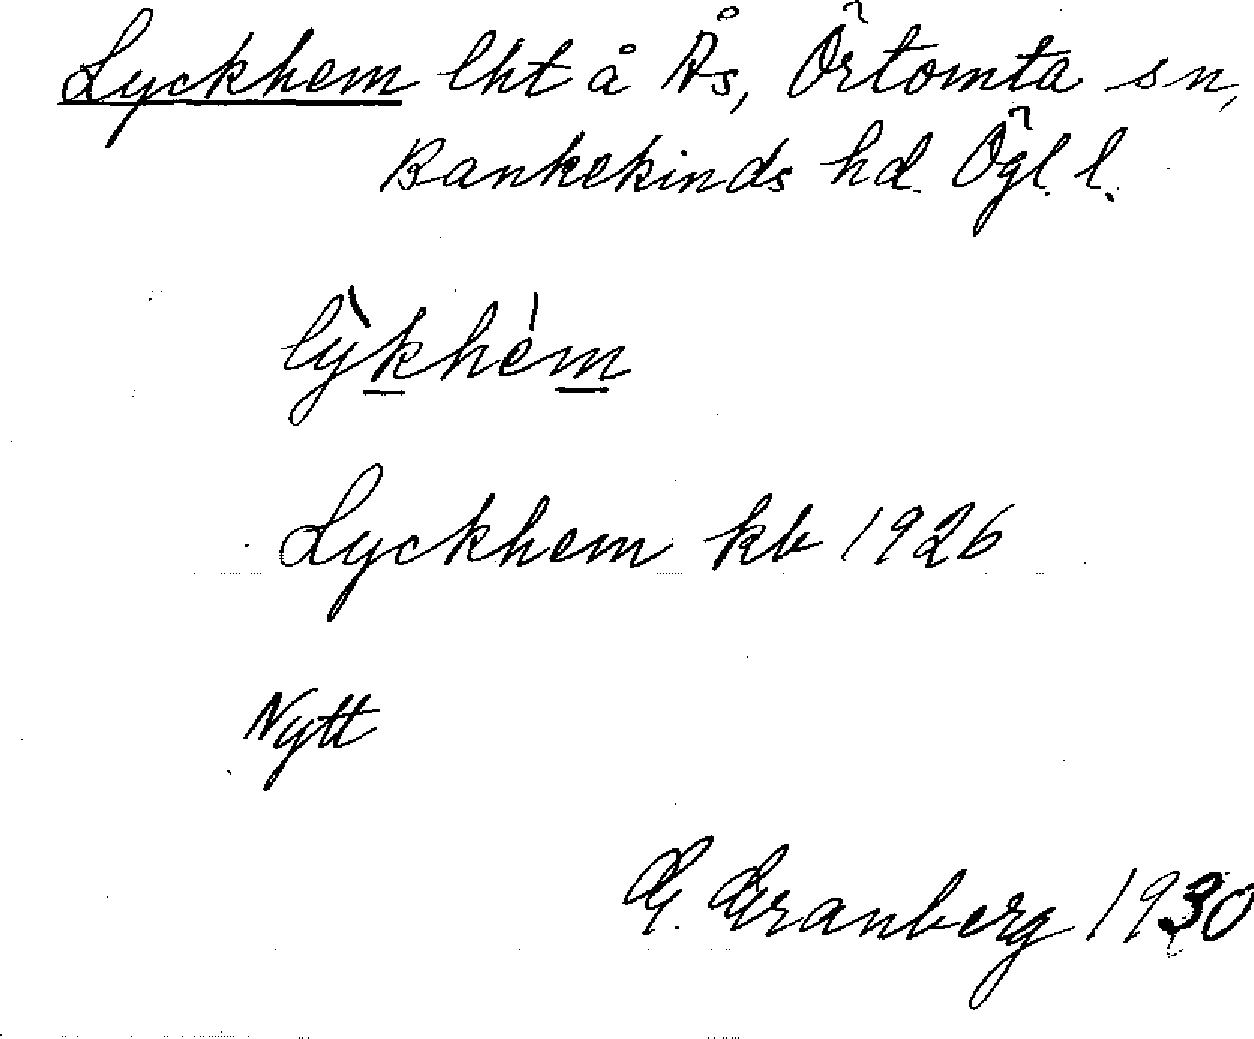 Lyckhem lht å Ås, Örtomta sn,
Bankekinds hd Ögl. l.
lỳkhém
Lyckhem kb 1926
Nytt
G. Granberg 1930